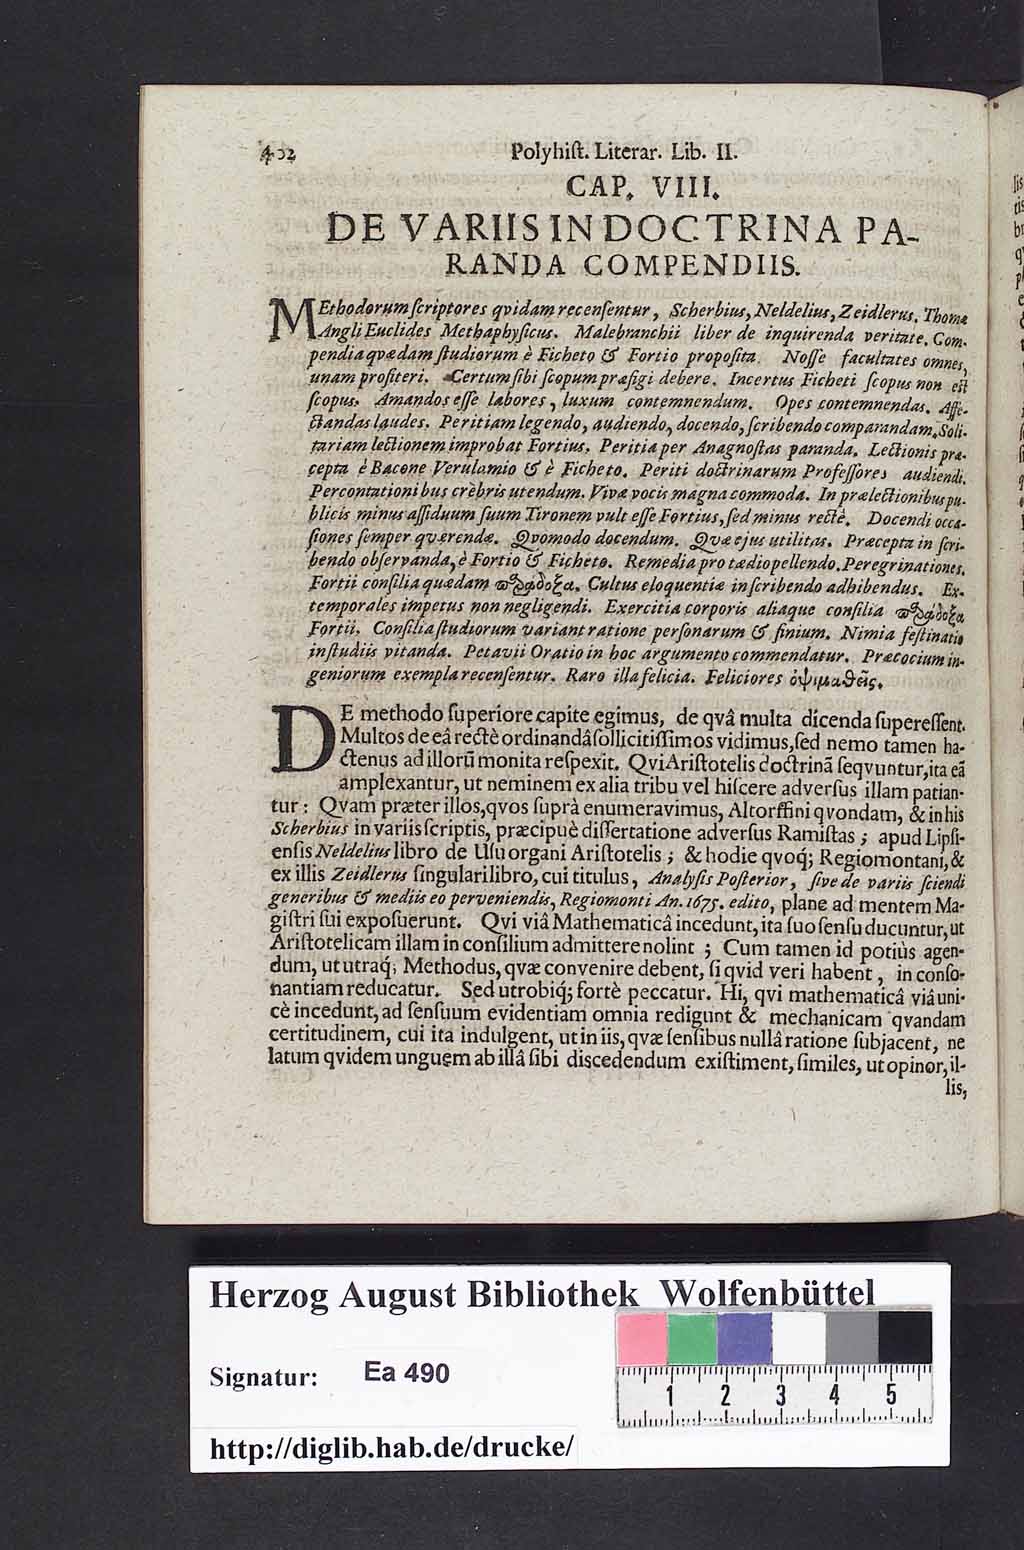 402 Polyhiſt. Literar. Lib. II.
CAP. VIII.
DE VARIIS IN DOCTRINA PA-
RANDA COMPENDIIS.
MEthodorum ſcriptores qvidam recenſentur, Scherbius, Neldelius, Zeidlerus. Thomæ
Angli Euclides Methaphyſicus. Malebranchii liber de inquirenda veritate. Com-
pendia qvædam ſtudiorum è Ficheto & Fortio propoſita. Noſſe facultates omnes,
unam profiteri. Certum ſibi ſcopum præfigi debere. Incertus Ficheti ſcopus non eſt
ſcopus. Amandos eſſe labores, luxum contemnendum. Opes contemnendas. Affe-
ctandas laudes. Peritiam legendo, audiendo, docendo, ſcribendo comparandam. Soli-
tariam lectionem improbat Fortius. Peritia per Anagnoſtas paranda. Lectionis præ-
cepta è Bacone Verulamio & è Ficheto. Periti doctrinarum Profeſſores audiendi.
Percontationibus crèbris utendum. Vivæ vocis magna commoda. In prælectionibus pu-
blicis minus aſſiduum ſuum Tironem vult eſſe Fortius, ſed minus rectè. Docendi occa-
ſiones ſemper quærendæ. Qvomodo docendum. Qvæ ejus utilitas. Præcepta in ſcri-
bendo obſervanda, è Fortio & Ficheto. Remedia pro tædio pellendo. Peregrinationes.
Fortii conſilia quædam παράδοξα. Cultus eloquentiæ in ſcribendo adhibendus. Ex-
temporales impetus non negligendi. Exercitia corporis aliaque conſilia παράδοξα
Fortii. Conſilia ſtudiorum variant ratione perſonarum & finium. Nimia feſtinatio
in ſtudiis vitanda. Petavii Oratio in hoc argumento commendatur. Præcocium in-
geniorum exempla recenſentur. Raro illa felicia. Feliciores ὀψιμαθεῖς.
DE methodo ſuperiore capite egimus, de qvâ multa dicenda ſupereſſent.
Multos de eâ rectè ordinandâ ſollicitiſſimos vidimus, ſed nemo tamen ha-
ctenus ad illorũ monita reſpexit. Qvi Ariſtotelis doctrinã ſeqvuntur, ita eã
amplexantur, ut neminem ex alia tribu vel hiſcere adverſus illam patian-
tur: Qvam præter illos, qvos ſuprà enumeravimus, Altorffini qvondam, & in his
Scherbius in variis ſcriptis, præcipuè diſſertatione adverſus Ramiſtas; apud Lipſi-
enſis Neldelius libro de Uſu organi Ariſtotelis; & hodie qvoq́; Regiomontani, &
ex illis Zeidlerus ſingulari libro, cui titulus, Analyſis Poſterior, ſive de variis ſciendi
generibus & mediis eo perveniendis, Regiomonti An. 1675. edito, plane ad mentem Ma-
giſtri ſui expoſuerunt. Qvi viâ Mathematicâ incedunt, ita ſuo ſenſu ducuntur, ut
Ariſtotelicam illam in conſilium admittere nolint; Cum tamen id potiùs agen-
dum, ut utraq́; Methodus, qvæ convenire debent, ſi qvid veri habent, in conſo-
nantiam reducatur. Sed utrobiq́; fortè peccatur. Hi, qvi mathematicâ viâ uni-
cè incedunt, ad ſenſuum evidentiam omnia redigunt & mechanicam qvandam
certitudinem, cui ita indulgent, ut in iis, qvæ ſenſibus nullâ ratione ſubjacent, ne
latum qvidem unguem ab illâ ſibi discedendum exiſtiment, ſimiles, ut opinor, il-
lis,
Herzog August Bibliothek Wolfenbüttel
Signatur: Ea 490
1 2 3 4 5
http://diglib.hab.de/drucke/